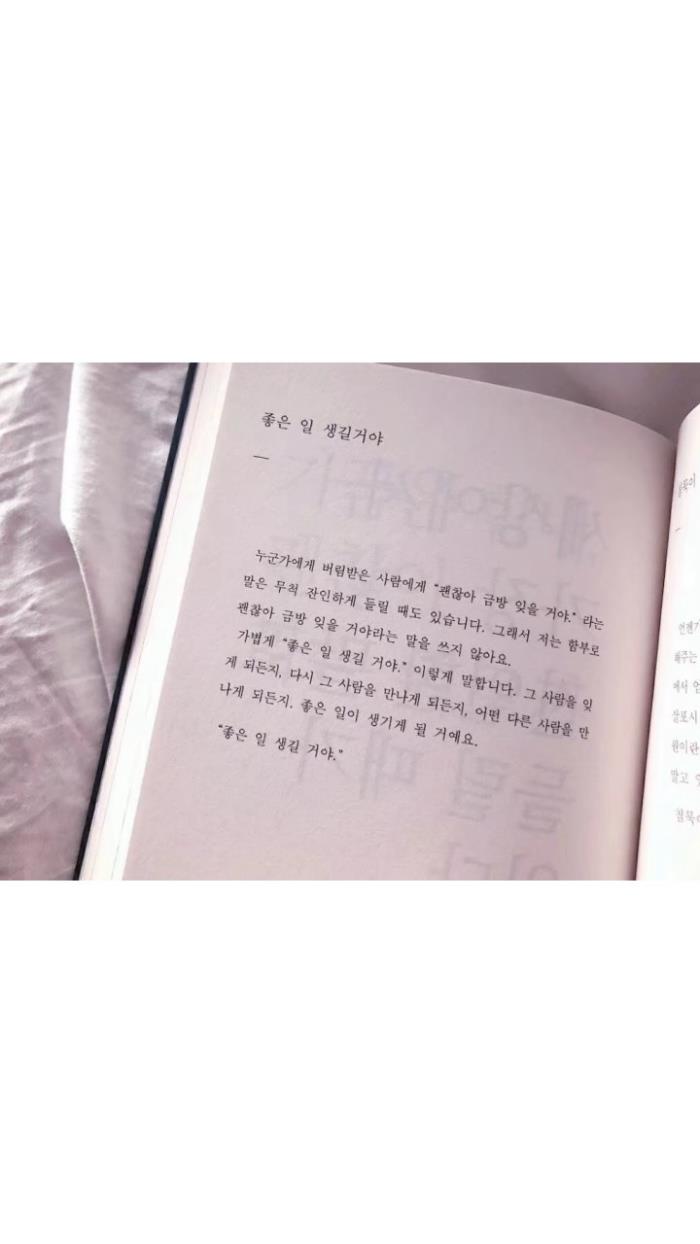 좋은 일 생길거야
누군가에게 버림받은 사람에게 "괜찮아 금방 잊을 거야." 라는
말은 무척 잔인하게 들릴 때도 있습니다. 그래서 저는 함부로
괜찮아 금방 잊을 거야라는 말을 쓰지 않아요.
가볍게 "좋은 일 생길 거야." 이렇게 말합니다. 그 사람을 잊
게 되든지, 다시 그 사람을 만나게 되든지, 어떤 다른 사람을 만
나게 되든지. 좋은 일이 생기게 될 거예요.
"좋은 일 생길 거야."
언젠가
해주는
에서 언
살포시
원이란
말고